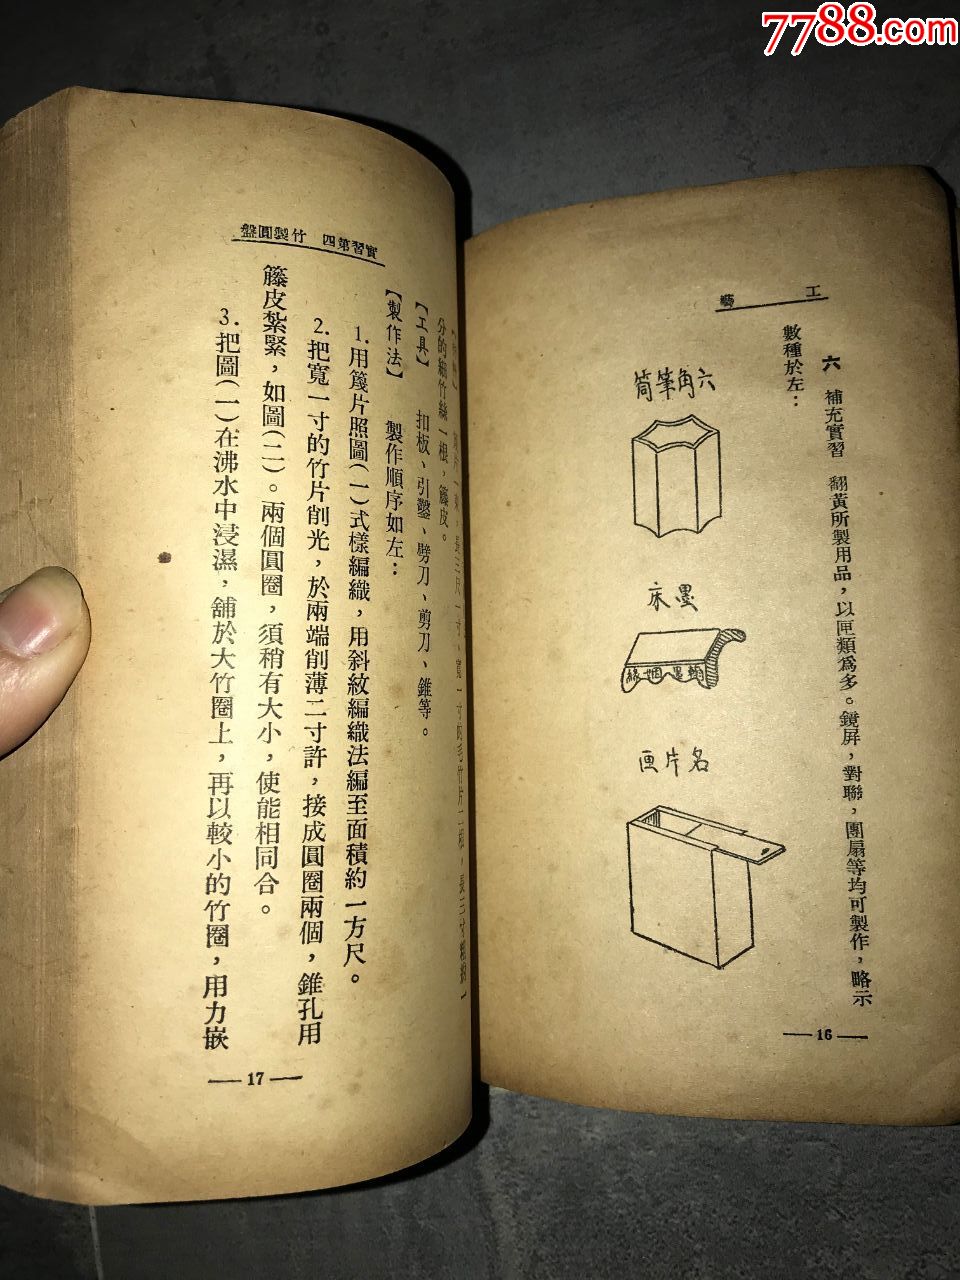 7788.com
工藝
六　補充實習　翻黃所製用品，以匣類爲多。鏡屏，對聯，團扇等均可製作，略示
數種於左：
六角筆筒
墨床
名片画
— 16 —
實習第四　竹製圓盤
長三尺一寸、寬一寸的毛竹片二根，長三寸粗約一
分的細竹絲一根，籐皮。
【工具】　扣板、引鑿、劈刀、剪刀、錐等。
【製作法】　製作順序如左：
1. 用篾片照圖(一)式樣編織，用斜紋編織法編至面積約一方尺。
2. 把寬一寸的竹片削光，於兩端削薄二寸許，接成圓圈兩個，錐孔用
籐皮紮緊，如圖(二)。兩個圓圈，須稍有大小，使能相同合。
3. 把圖(一)在沸水中浸濕，舖於大竹圈上，再以較小的竹圈，用力嵌
— 17 —